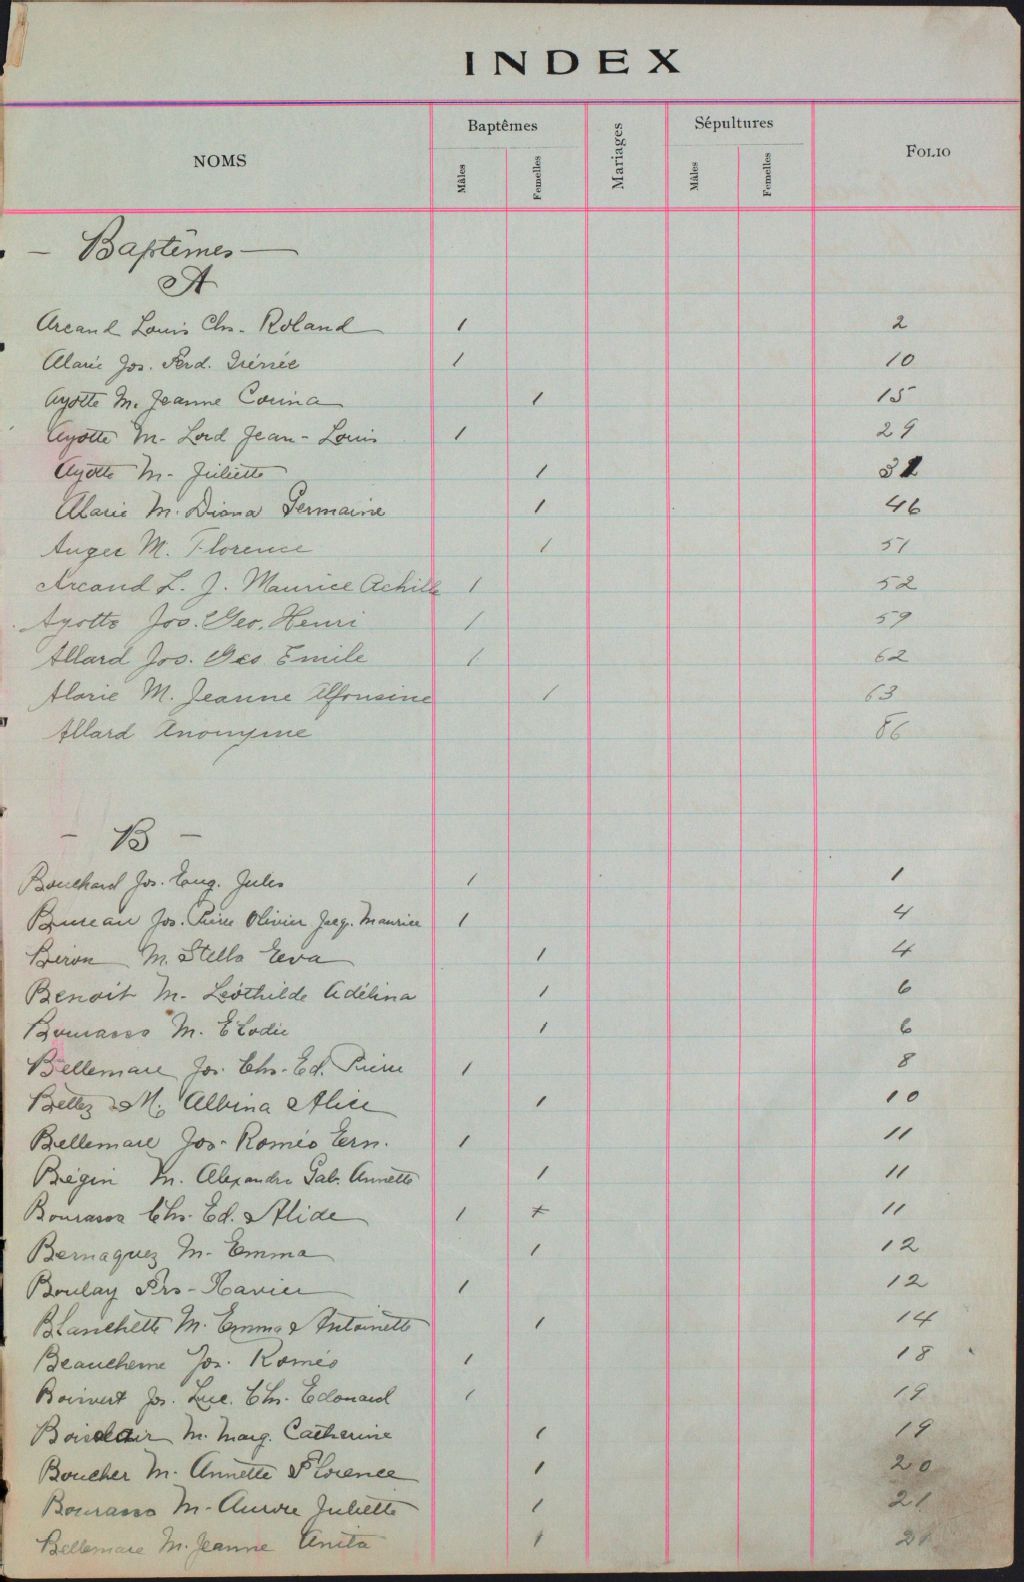 INDEX
NOMS Baptêmes Mâles Femelles Mariages Sépultures Mâles Femelles FOLIO
— Baptêmes —
A
Arcand Louis Chs. Roland 1 2
Alarie Jos. Ferd. Irénée 1 10
Ayotte M. Jeanne Corina 1 15
Ayotte M. Lord Jean-Louis 1 29
Ayotte M. Juliette 1
Alarie M. Diana Germaine 1 46
Auger M. Florence 1 51
Arcand L. J. Maurice Achille 1 52
Ayotte Jos. Geo. Henri 1 59
Allard Jos. Geo Emile 1 62
Alarie M. Jeanne Alfonsine 1 63
Allard Anonyme 86
— B —
Bouchard Jos. Eug. Jules 1 1
Bureau Jos. Pierre Olivier Jacq. Maurice 1 4
Biron M. Stella Eva 1 4
Benoit M. Léothilde Adélina 1 6
Bourassa M. Elodie 1 6
Bellemare Jos. Chs. Ed. Pierre 1 8
Bettez M. Albina Alice 1 10
Bellemare Jos. Roméo Ern. 1 11
Bégin M. Alexandra Gab. Annette 1 11
Bourassa Chs. Ed. Alide 1 11
Bernaquez M. Emma 1 12
Boulay Frs-Xavier 1 12
Blanchette M. Emma Antoinette 1 14
Beaucheme Jos. Roméo 1 18
Boisvert Jos. Luc. Chs. Edouard 1 19
Boisclair M. Marg. Catherine 1 19
Boucher M. Annette Florence 1 20
Bourassa M. Aurore Juliette 1 21
Bellemare M. Jeanne Anita 1 21